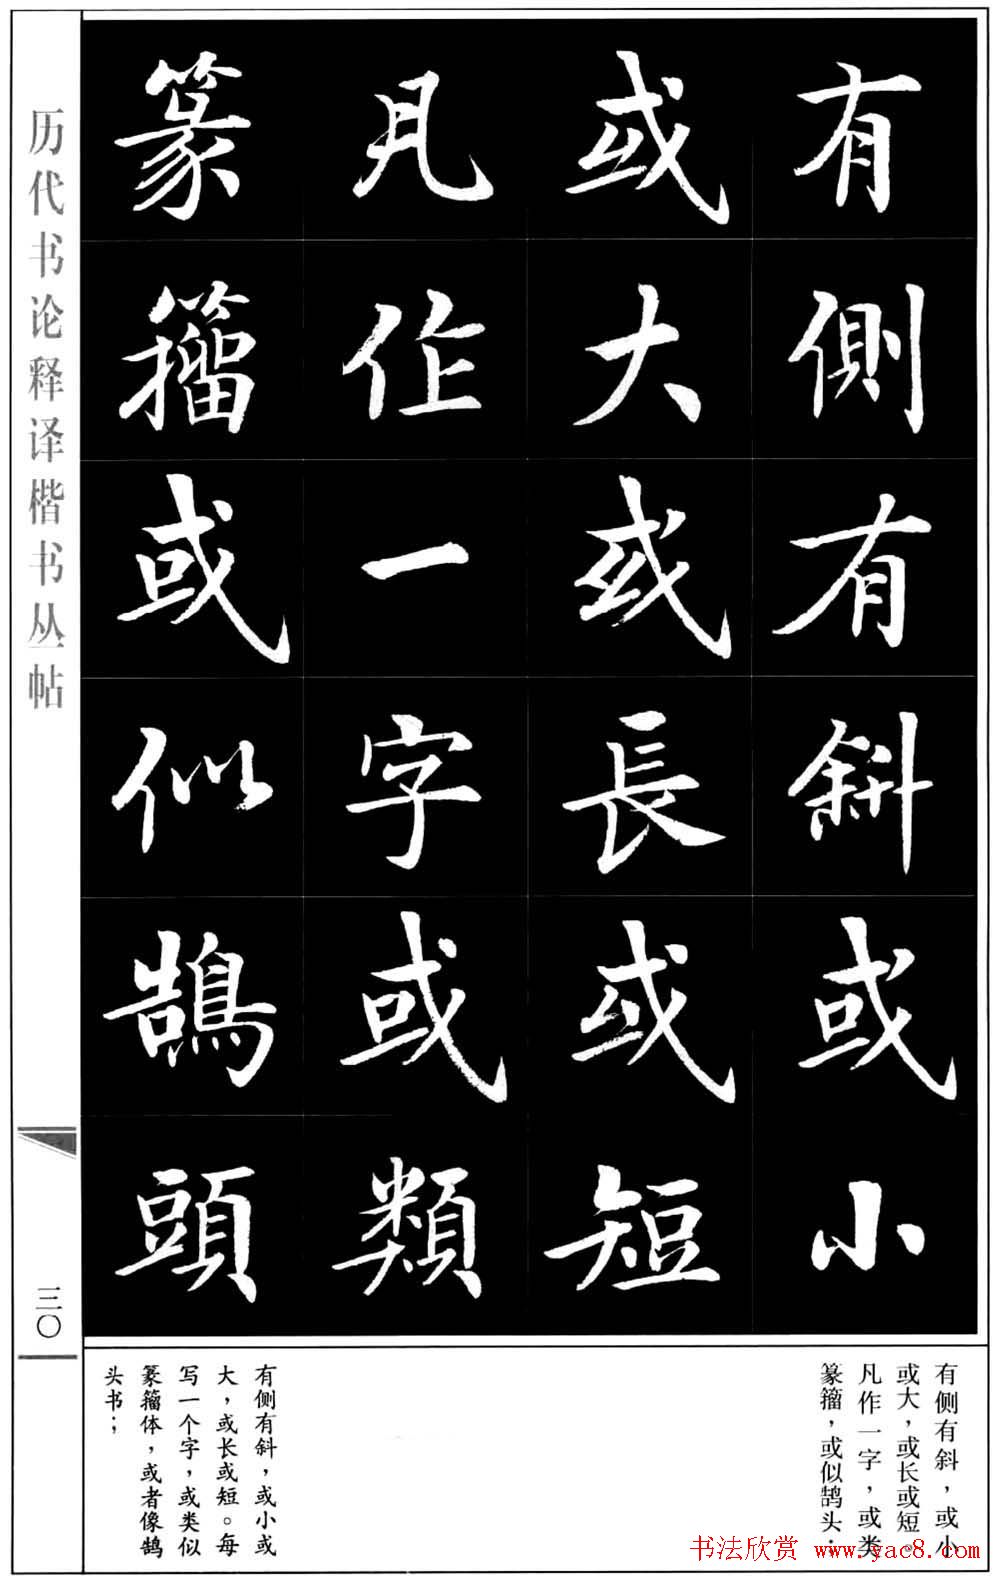 有側有斜或小
或大或長或短
凡作一字或類
篆籀或似鵠頭
历代书论释译楷书丛帖
三〇
有侧有斜，或小
或大，或长或短。
凡作一字，或类
篆籀，或似鹄头；
有侧有斜，或小或
大，或长或短。每
写一个字，或类似
篆籀体，或者像鹄
头书；
书法欣赏 www.yac8.com